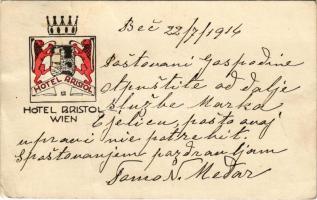 Beč 22/7/1914
Poštovani Gospodine
otpustite od dalje
službe Marka
Cjelicu, pošto ovaj
upravi nije potrebit.
S poštovanjem pozdravljam
Tomo N. Medar
HOTEL BRISTOL
HOTEL BRISTOL
WIEN